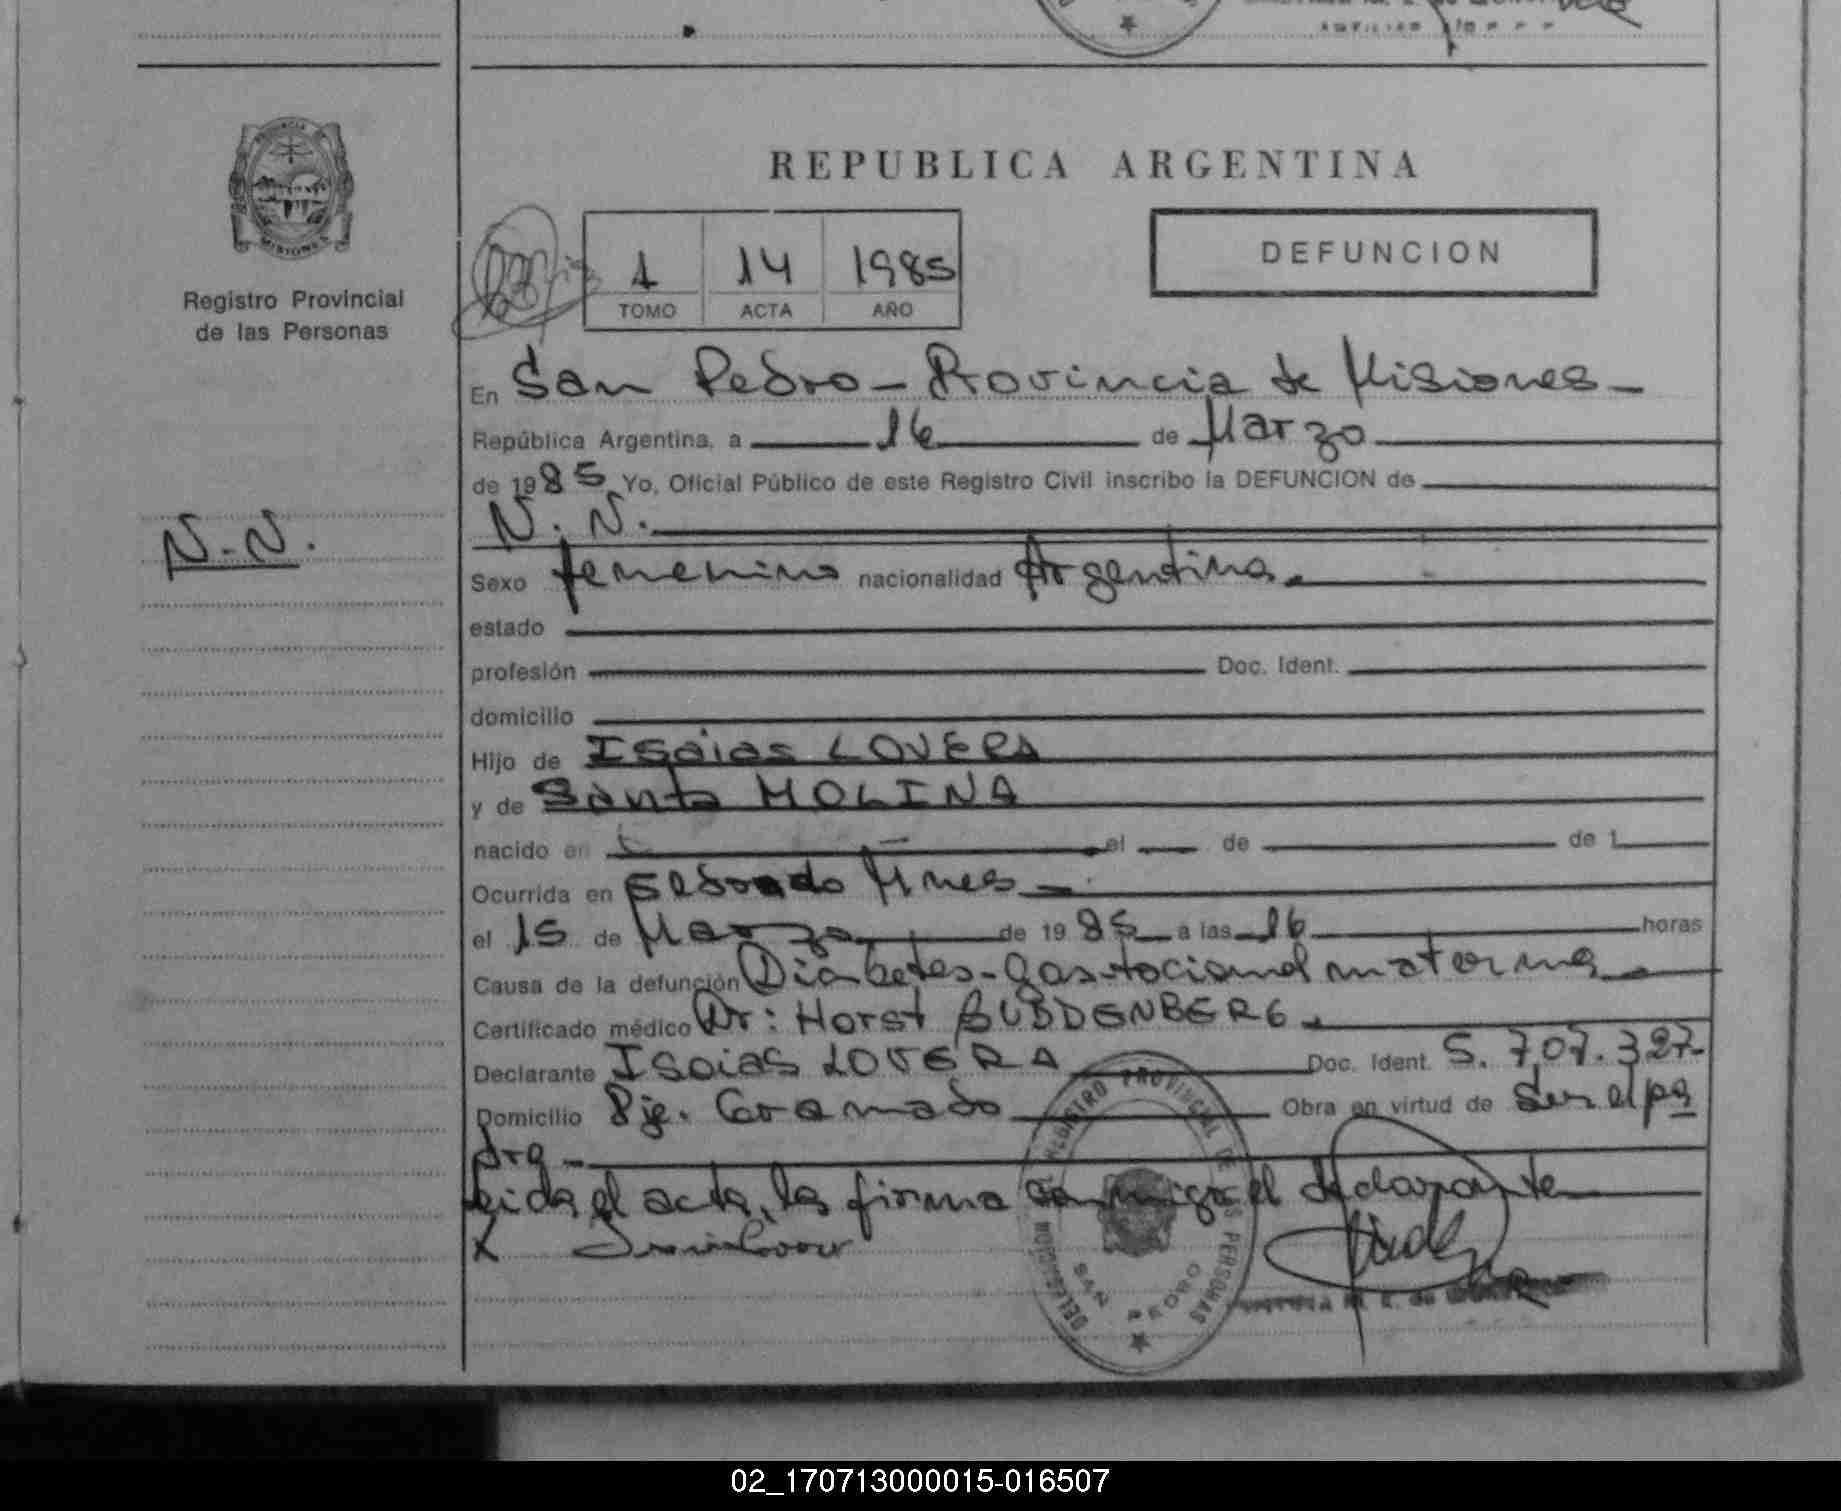 REPUBLICA ARGENTINA
PROVINCIA DE
MISIONES
Registro Provincial
de las Personas
1 14 1985
TOMO ACTA AÑO
DEFUNCION
En San Pedro - Provincia de Misiones -
República Argentina, a 16 de Marzo
de 1985 Yo, Oficial Público de este Registro Civil inscribo la DEFUNCION de
N. N.
N.N.
Sexo femenino nacionalidad Argentina.
estado
profesión Doc. Ident.
domicilio
Hijo de Isaias LOVERA
y de Santa MOLINA
nacido en el de de 1
Ocurrida en
el 15 de Marzo de 1985 a las 16 horas
Causa de la defunción Diabetes - gastocional materna
Certificado médico Dr: Horst BUDDENBERG.
Declarante Isaias LOVERA Doc. Ident. 5.707.327-
Domicilio Pje. Gramado Obra en virtud de Ser el pa
dre -
Leida el acta, la firma conmigo el declarante
X
DELEGACION REGISTRO PROVINCIAL DE LAS PERSONAS
SAN PEDRO
02_170713000015-016507